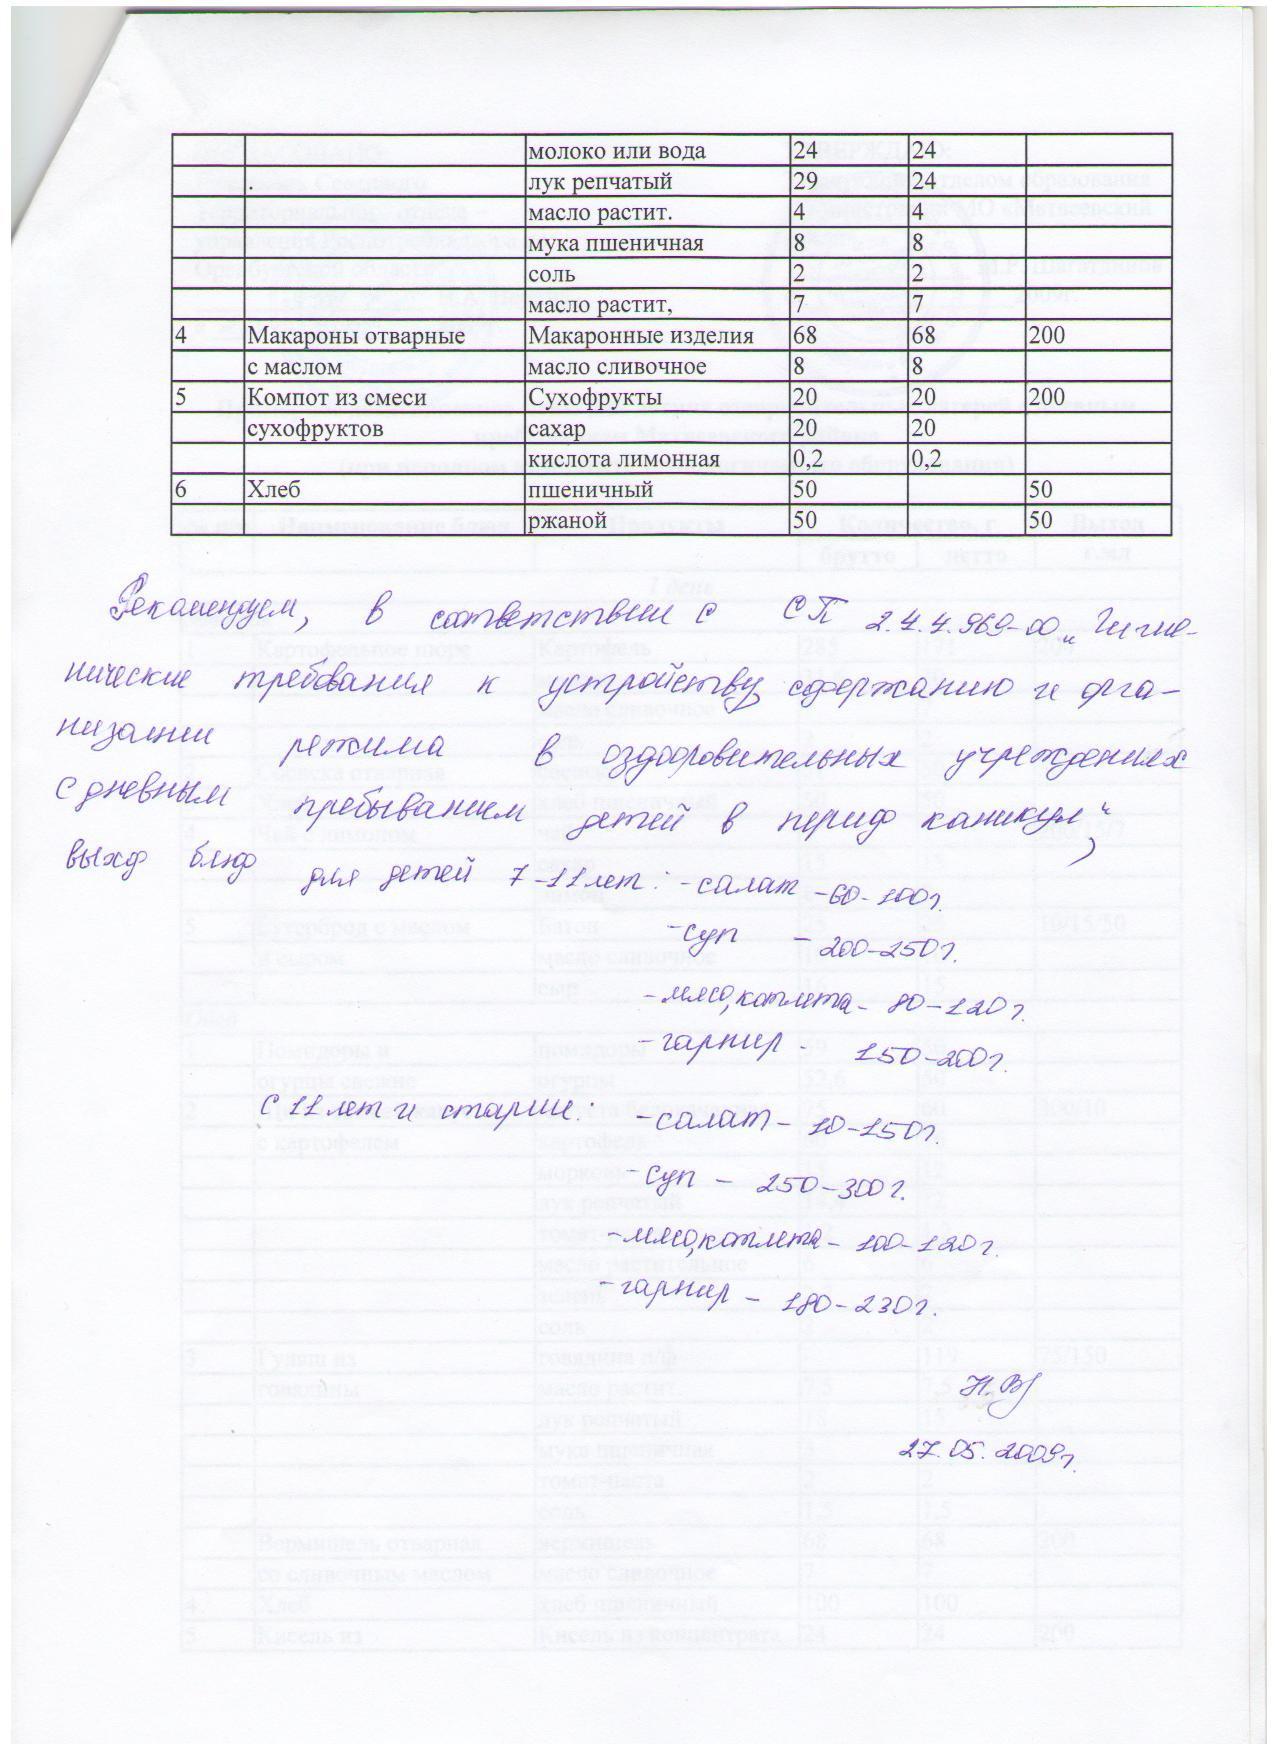 молоко или вода 24 24
лук репчатый 29 24
масло растит. 4 4
мука пшеничная 8 8
соль 2 2
масло растит, 7 7
4 Макароны отварные Макаронные изделия 68 68 200
с маслом масло сливочное 8 8
5 Компот из смеси Сухофрукты 20 20 200
сухофруктов сахар 20 20
кислота лимонная 0,2 0,2
6 Хлеб пшеничный 50 50
ржаной 50 50
Рекомендуем, в соответствии с СП 2.4.4.969-00 „Гигие-
нические требования к устройству, содержанию и орга-
низации режима в оздоровительных учреждениях
с дневным пребыванием детей в период каникул“,
выход блюд для детей 7-11 лет: - салат - 60-100 г.
- суп - 200-250 г.
- мясо, котлета - 80-120 г.
- гарнир - 150-200 г.
С 11 лет и старше: - салат - 10-150 г.
- суп - 250-300 г.
- мясо, котлета - 100-120 г.
- гарнир - 180-230 г.
27.05.2009 г.